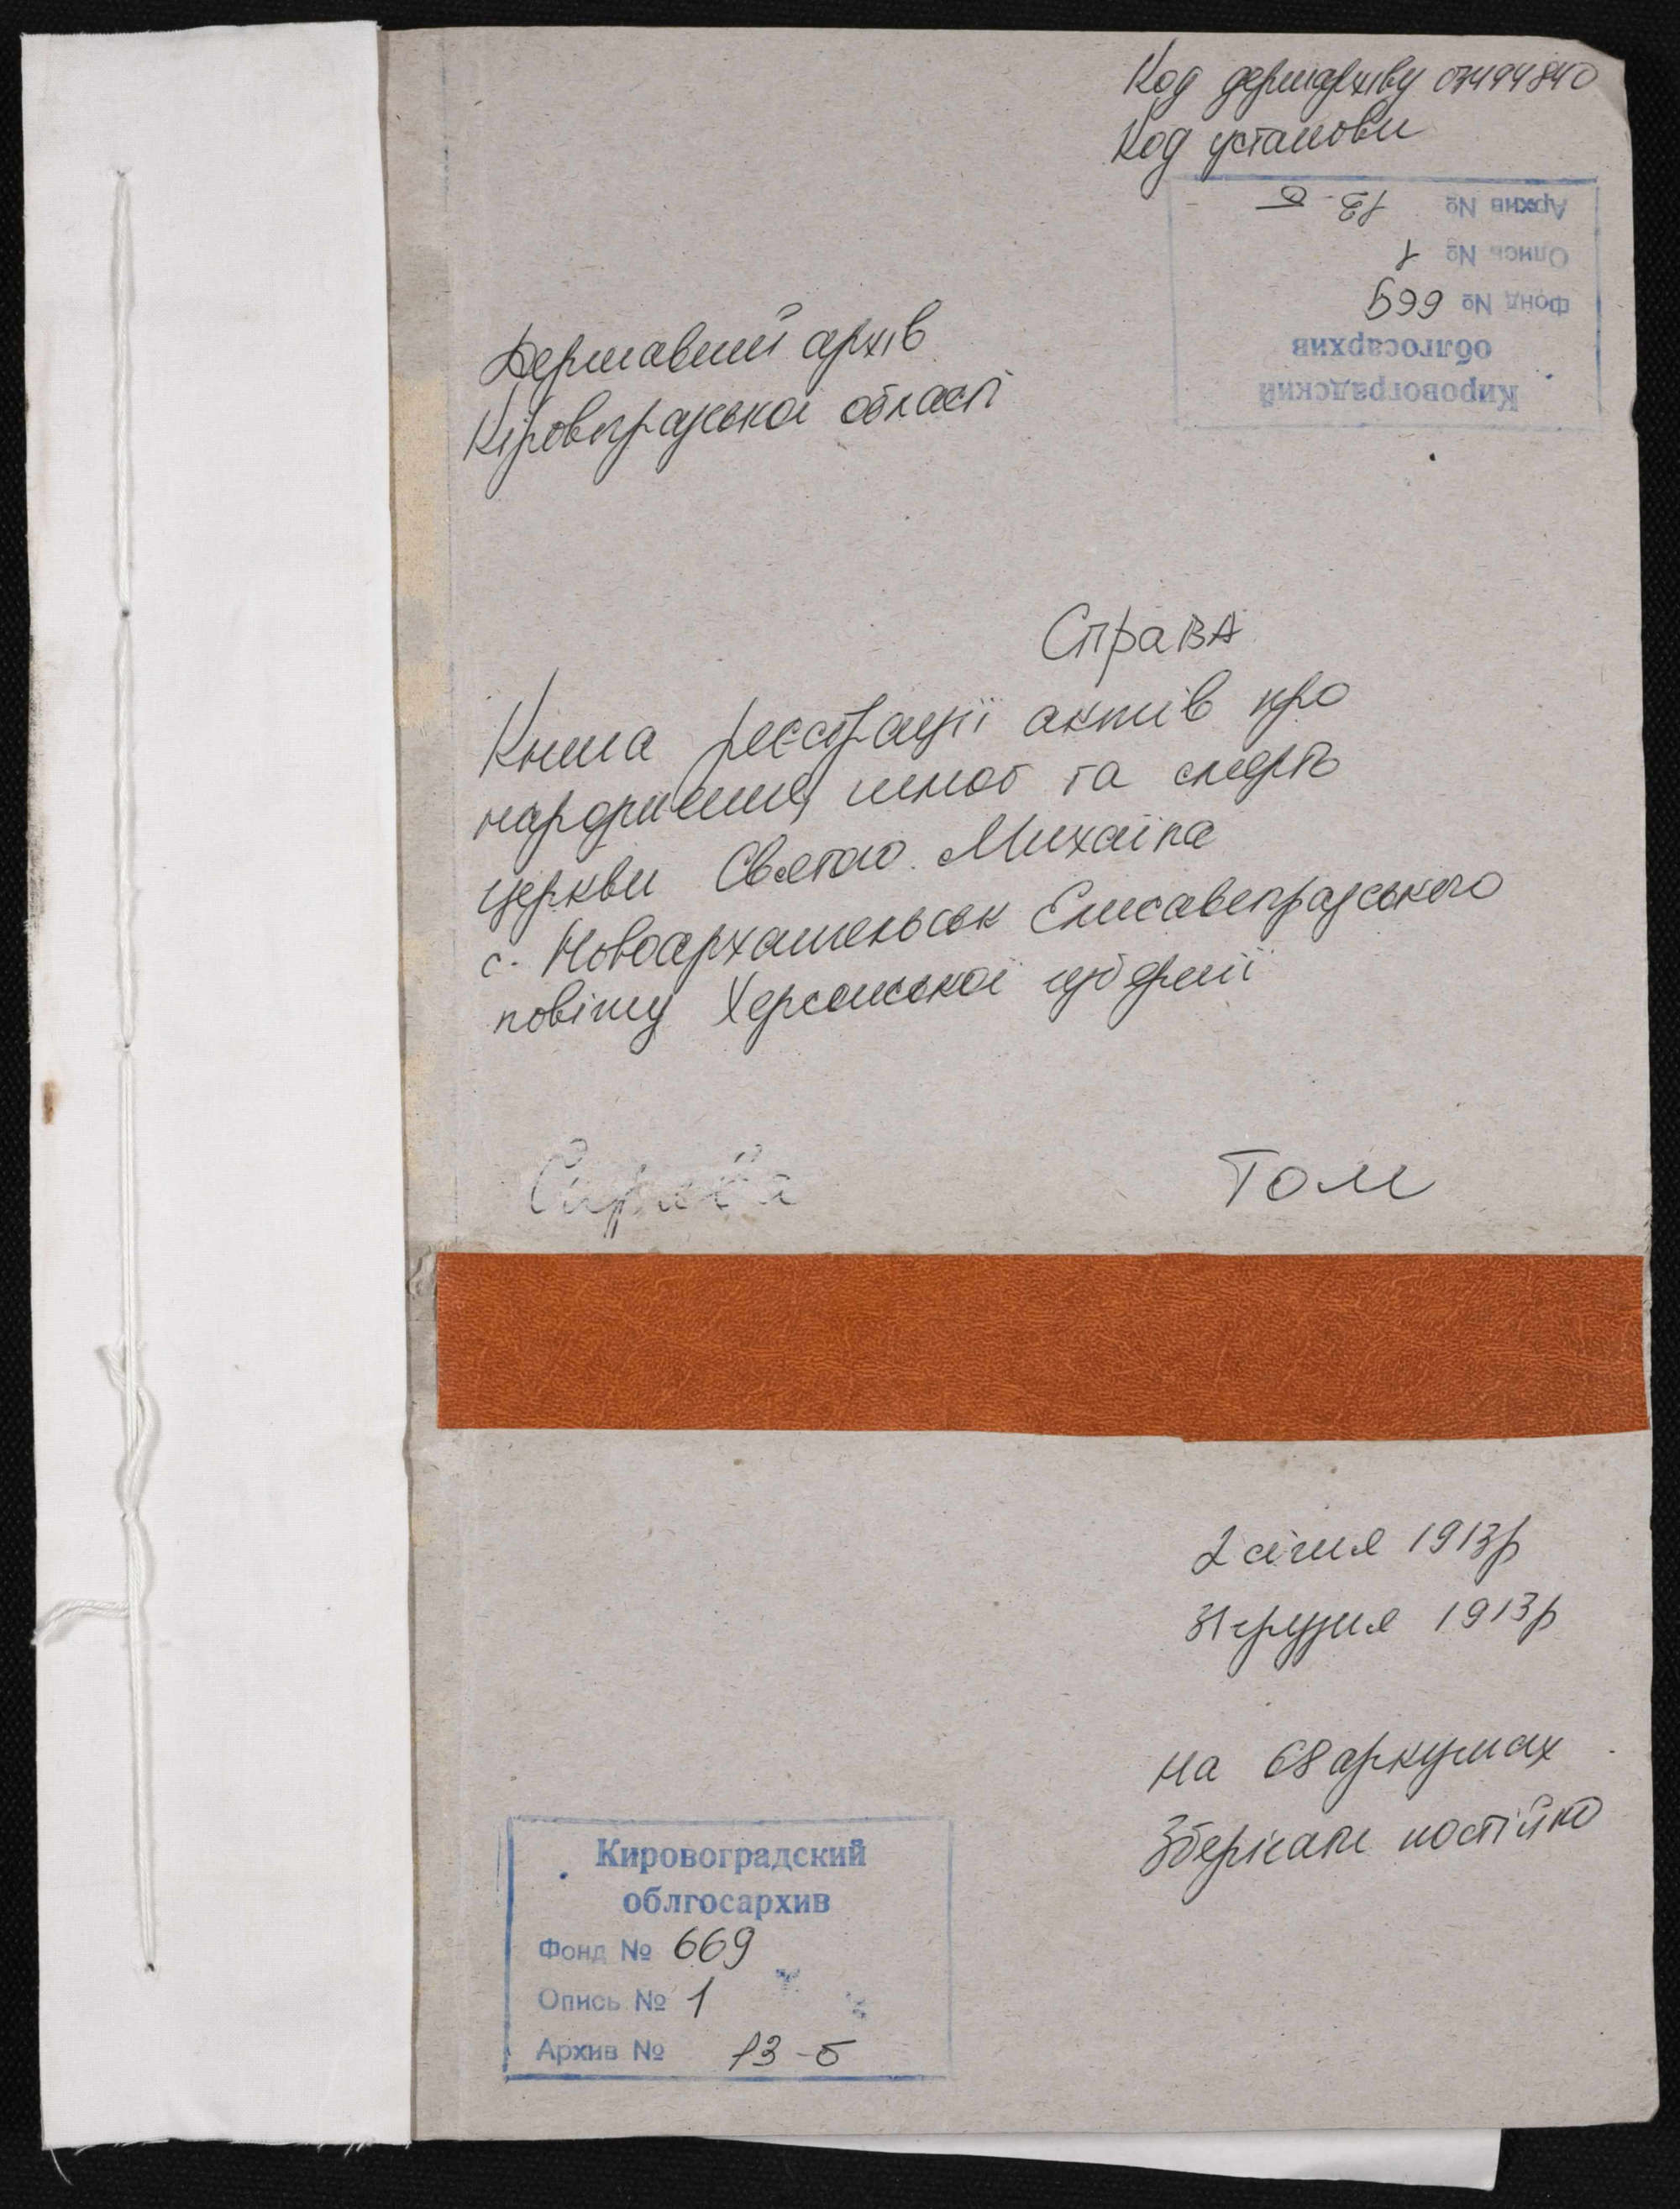 Код держархіву 03494840
Код установи
Архив № 13-б
Опись № 1
Фонд № 669
облгосархив
Кировоградский
Державний архів
Кіровоградської області
Справа
Книга реєстрації актів про
народження, шлюб та смерть
церкви Святого Михаїла
с. Новоархангельськ Єлисаветградського
повіту Херсонської губернії
Справа
Том
2 січня 1913р
31 грудня 1913р
на 68 аркушах
Зберігати постійно
Кировоградский
облгосархив
Фонд № 669
Опись № 1
Архив № 13-б